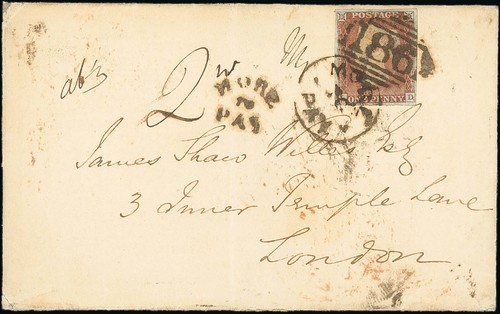 POSTAGE
186
ONE PENNY
D
MORE
TO
PAY
2
James Shaw Willes Esq
3 Inner Temple Lane
London